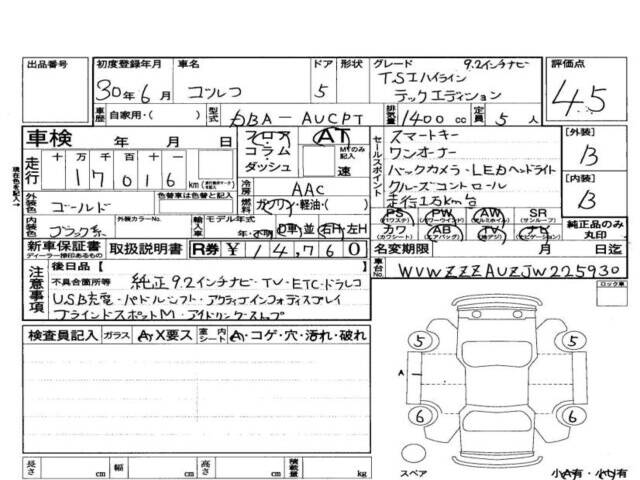 出品番号
初度登録年月
30年6月
車名
コルフ
ドア
5
形状
グレード
9.2インチナビ
TSIハイライン
テックエディション
評価点
4.5
車歴
自家用・( )
型式
DBA-AUCPT
排気量
1400 cc
定員
5 人
車検
年 月 日
フロア
コラム
ダッシュ
AT
MTのみ記入
速
セールスポイント
スマートキー
ワンオーナー
バックカメラ・LEDヘッドライト
クルーズコントロール
走行1.5km台
[外装]
B
[内装]
B
走行
十 万 千 百 十 一
17016
km
冷房
AAC
燃料
ガソリン・軽油・( )
外装色
ゴールド
色替車は色替前の色
内装色
ブラック系
外装カラーNo.
輸入車
モデル年式
年・不明
D車・並
右H・左H
PS
(パワステ)
PW
(パワーウインド)
AW
(アルミホイル)
SR
(サンルーフ)
カワ
(カワシート)
AB
(エアバッグ)
TV
(地デジ)
ナビ
(ナビゲーション)
純正品のみ
丸印
新車保証書
ディーラー捺印あるもの
取扱説明書
R券
¥14,760
名変期限
月 日迄
車台No.
WVWZZZAUZJW225930
注意事項
後日品[ ]
不具合箇所等
純正9.2インチナビ・TV・ETC・ドラレコ
USB充電・パドルシフト・アクティブインフォディスプレイ
ブラインドスポットM・アイドリングストップ
ロック車
検査員記入
ガラス
A,X要ス
室内シート
A・コゲ・穴・汚れ・破れ
5
5
A
6
6
スペア
小A有・小U有
長さ
cm
幅
cm
高さ
cm
積載量
kg